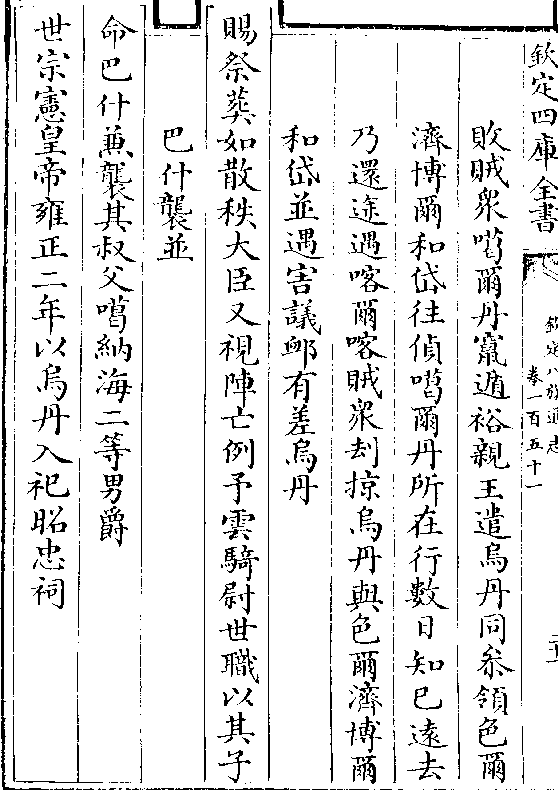 欽定四庫全書
欽定八旗通志
卷一百五十一
敗賊眾噶爾丹竄遁裕親王遣烏丹同叅領色爾
濟博爾和岱往偵噶爾丹所在行數日知已遠去
乃還途遇喀爾喀賊眾刦掠烏丹與色爾濟博爾
和岱並遇害議䘏有差烏丹
賜祭葬如散秩大臣又視陣亡例予雲騎尉世職以其子
巴什襲並
命巴什兼襲其叔父噶納海二等男爵
世宗憲皇帝雍正二年以烏丹入祀昭忠祠